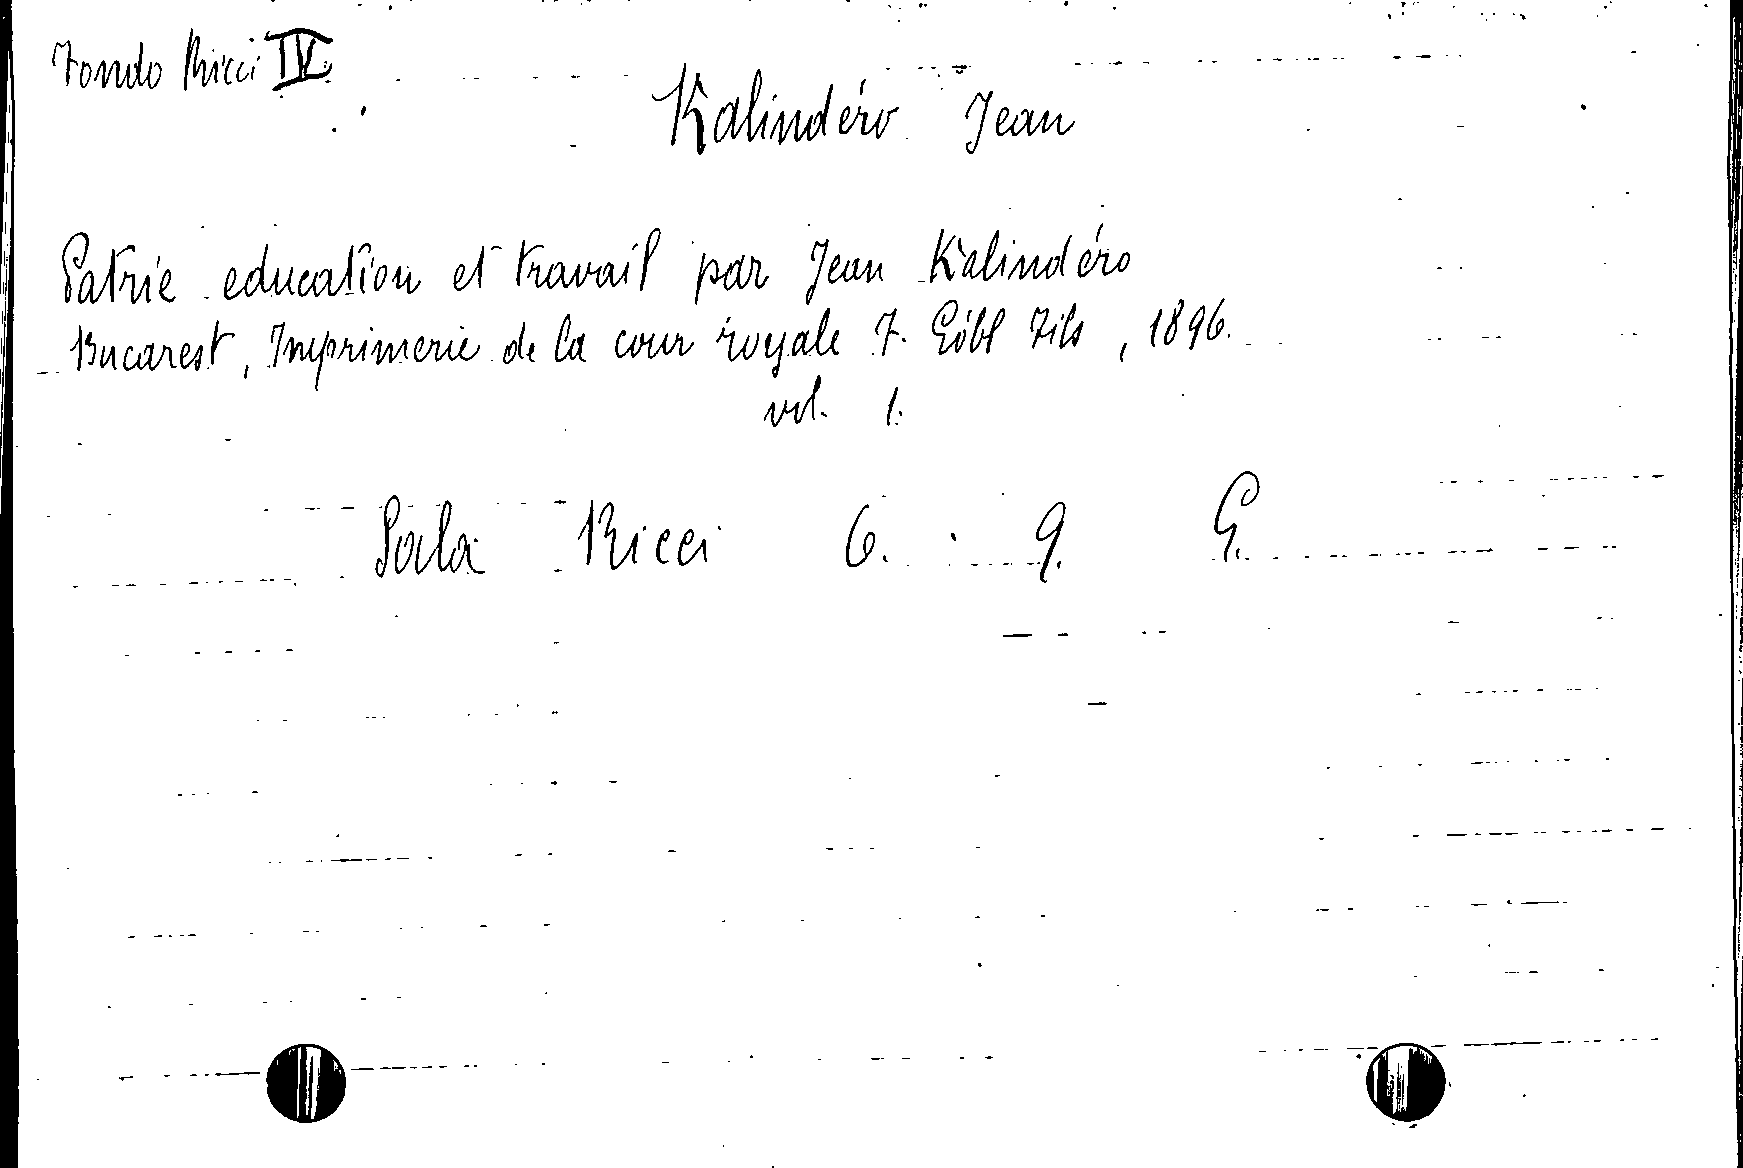 Fondo Ricci IV
Kalindéro Jean
Patrie education et travail par Jean Kalindéro
Bucarest, Imprimerie de la cour royale F. Göbl Fils, 1896.
vol. 1.
Sala Ricci 6. 9. G.